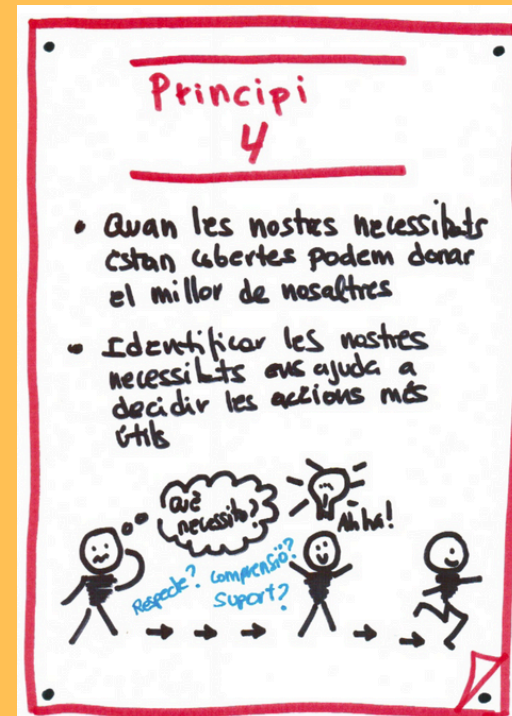 Principi
4
• Quan les nostres necessitats
estan cobertes podem donar
el millor de nosaltres
• Identificar les nostres
necessitats ens ajuda a
decidir les accions més
útils
Què
necessito?
Ahha!
Respecte? Comprensió?
Suport?